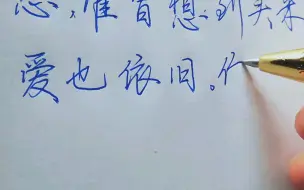 恋,谁曾想.到头来
爱也依旧。